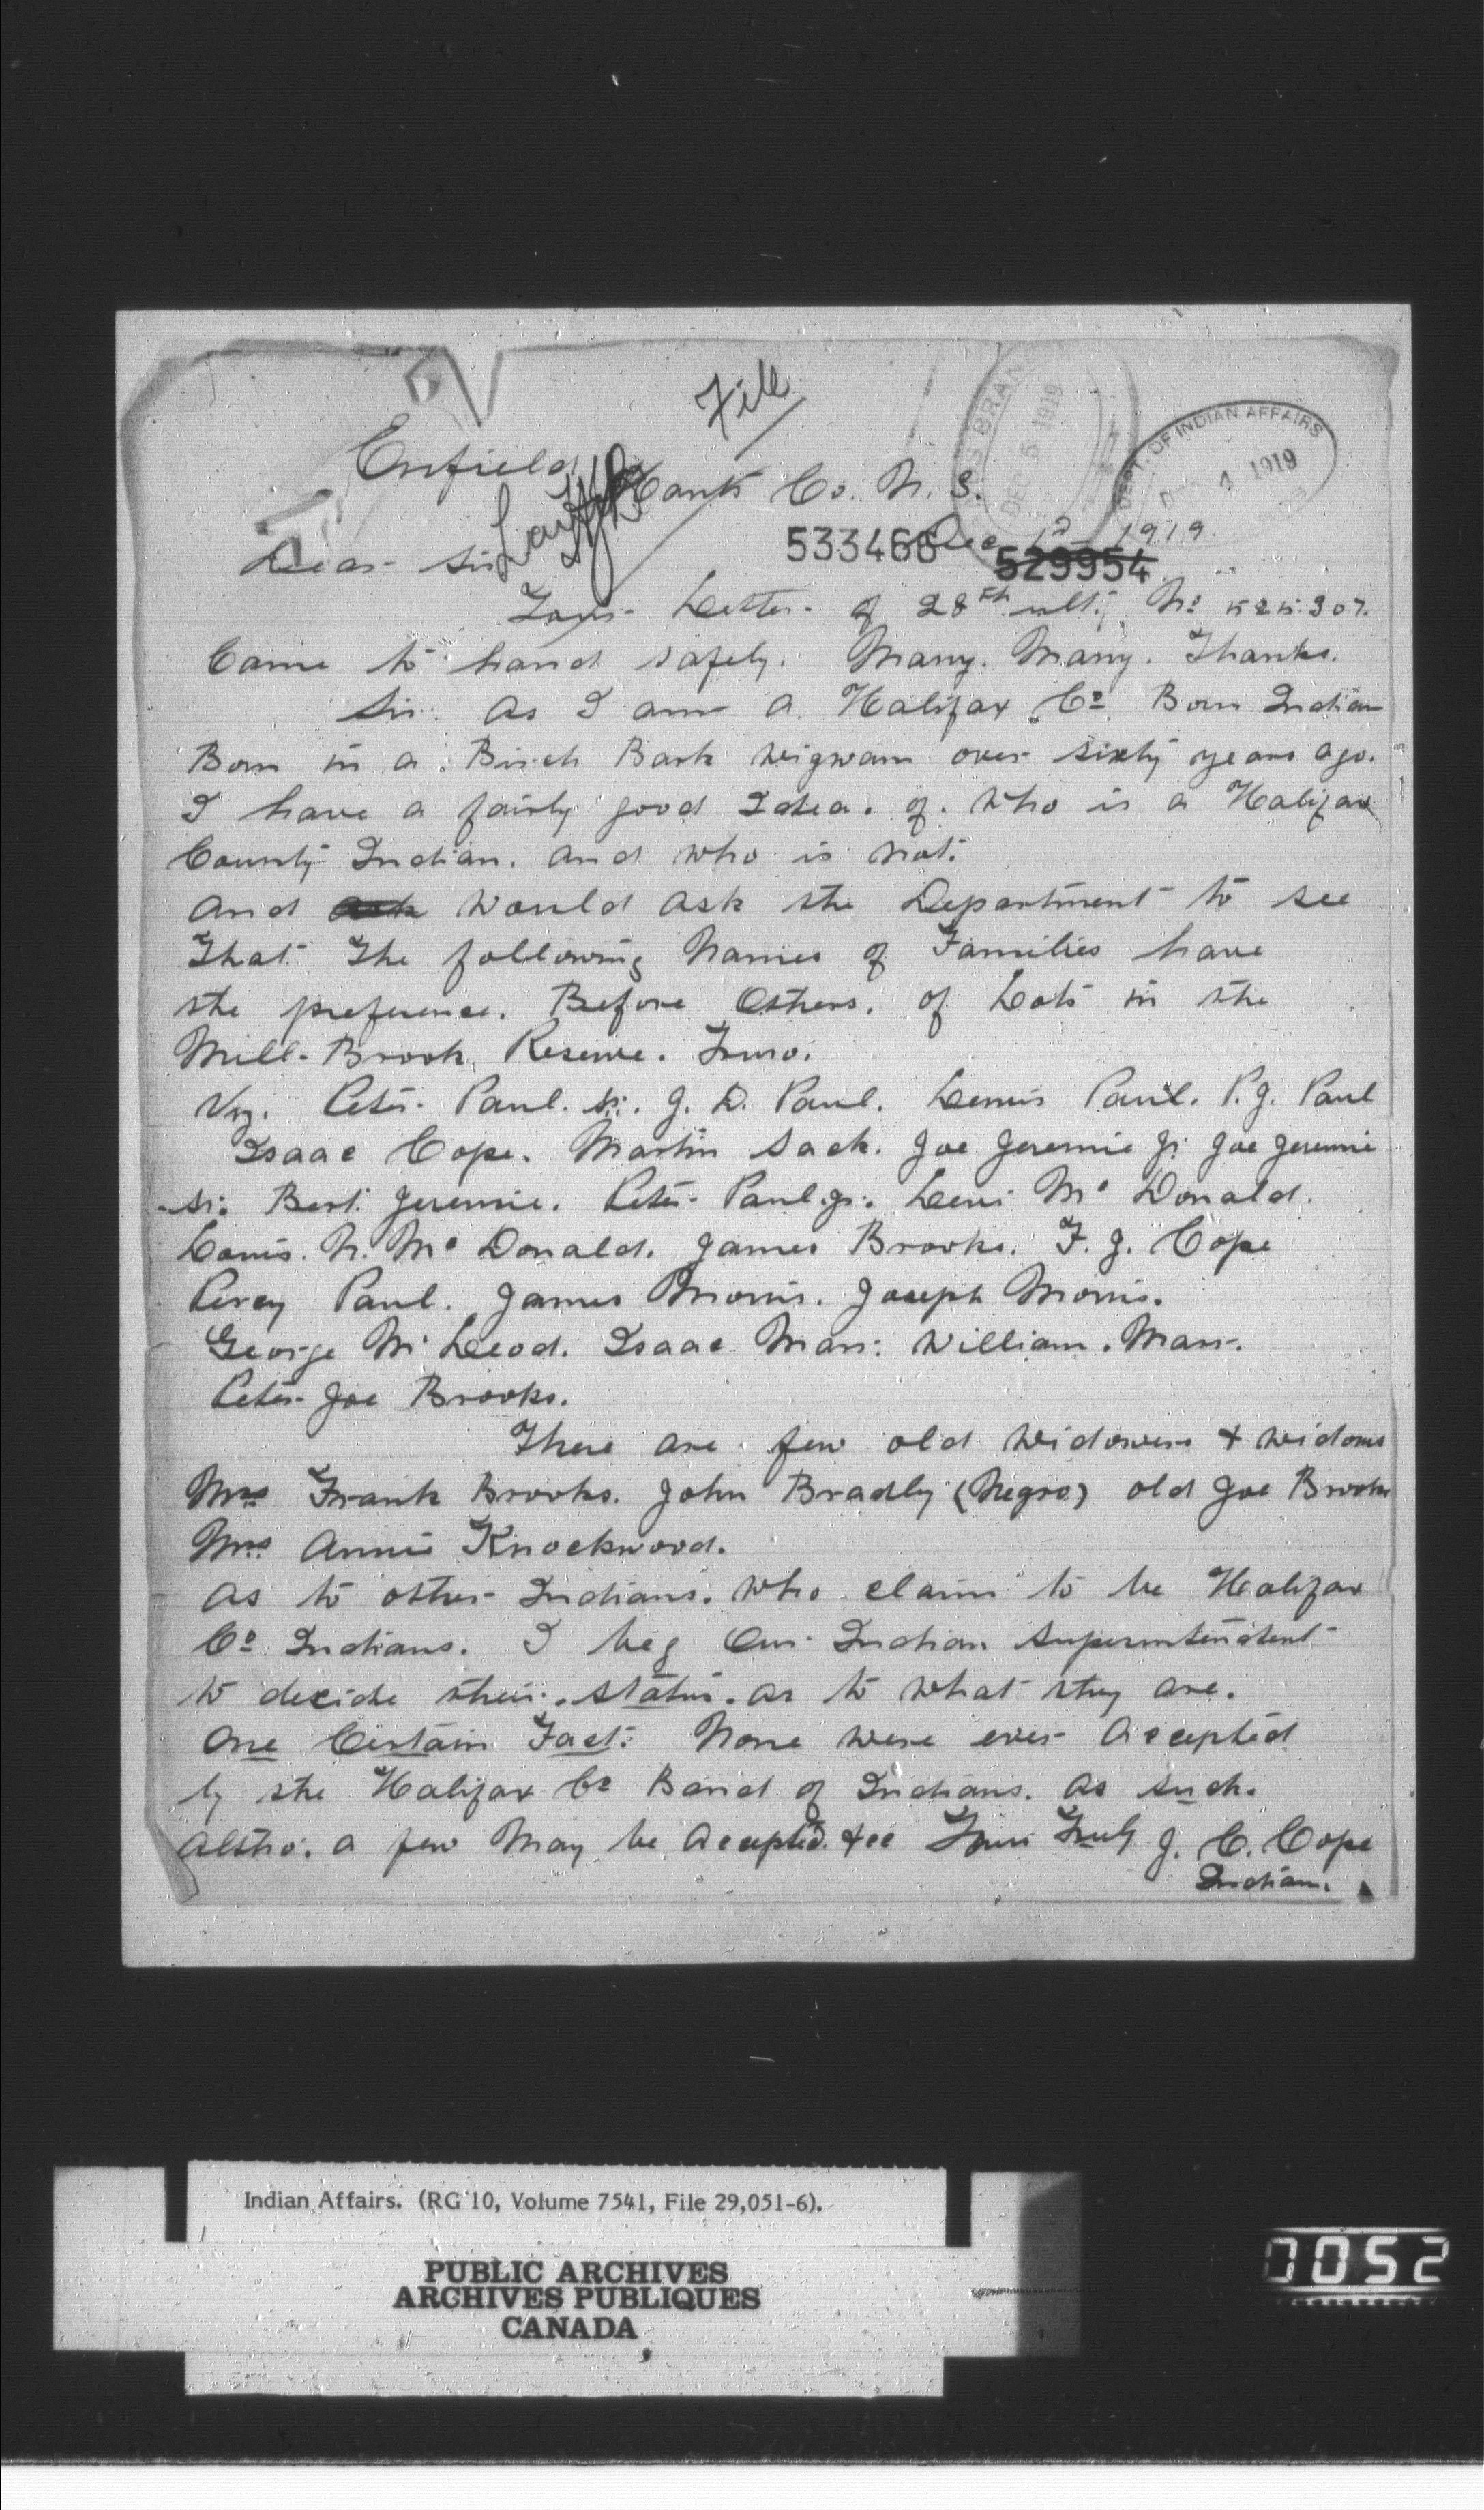 File
Enfield Hants Co. N. S.
DEC 5 1919
DEPT. OF INDIAN AFFAIRS
1919
533466 Dec 1st 1919
529954
Dear Sir
Your Letter of 28th ult; No 525.307.
Came to hand safely. Many. Many. Thanks.
Sir. As I am a Halifax Co Born Indian
Born in a Birch Bark Wigwam over sixty years ago.
I have a fairly good Idea. of. Who is a Halifax
County Indian. and who is not.
And ask Would ask the Department to see
That The following Names of Families have
the preference. Before Others. of Lots in the
Mill-Brook Reserve. Truro.
Viz. Peter Paul. sr. J. D. Paul. Lewis Paul. P. J. Paul
Isaac Cope. Martin Sack. Joe Jeremie Jr. Joe Jeremie
sr. Bert. Jeremie. Peter Paul. jr. Levi Mc Donald.
Louis. N. Mc Donald. James Brooks. F. J. Cope
Percy Paul. James Morris. Joseph Morris.
George Mc Leod. Isaac Marr. William. Marr.
Peter Joe Brooks.
There are few old Widowers + widows
Mrs Frank Brooks. John Bradly (Negro) old Joe Brooks
Mrs Annie Knockwood.
As to other Indians. Who claim to be Halifax
Co Indians. I beg Our Indian Superintendent
to decide their. status. as to what they are.
One Certain Fact: None were ever Accepted
by the Halifax Co Band of Indians. As such.
Altho. a few May be Accepted. &cc Yours Truly J. C. Cope
Indian.
Indian Affairs. (RG 10, Volume 7541, File 29,051-6).
PUBLIC ARCHIVES
ARCHIVES PUBLIQUES
CANADA
0052